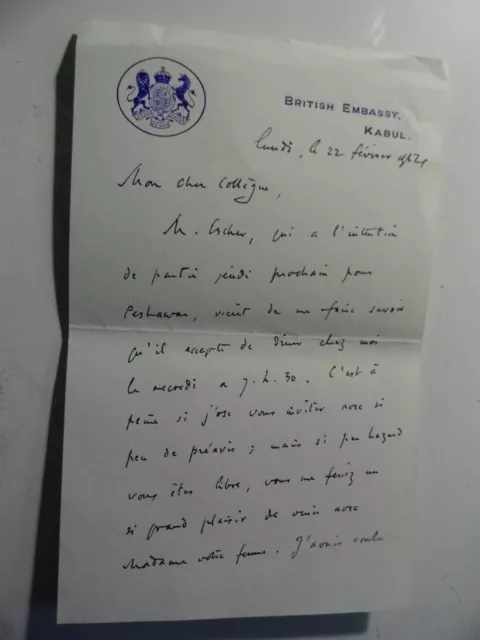 British Embassy,
Kabul.
lundi, le 22 février
Mon cher Collègue,
M. Escher, qui a l'intention
de partir jeudi prochain pour
Peshawar, vient de me faire savoir
qu'il accepte de dîner chez moi
le mercredi a 7.h.30. C'est à
peine si j'ose vous inviter avec si
peu de préavis; mais si par hazard
vous êtes libre, vous me feriez un
si grand plaisir de venir avec
Madame votre femme. J'avais voulu